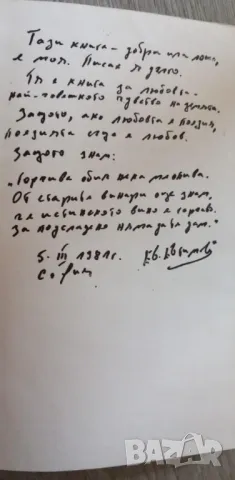 Тази книга - добра или лоша,
е моя. Писах я дълго.
Тя е книга за любовта -
най-човешкото чувство на земята.
Защото, ако любовта е поезия,
поезията също е любов.
Защото знам:
"Горчива обич нека ме опива.
От старите винари още знам,
че истинското вино е горчиво.
За подсладено няма да го дам."
5. III 1981 г.
София
bazar.bg